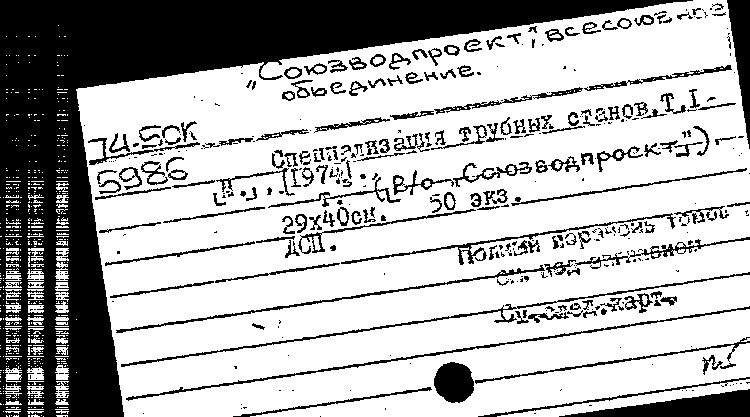 „Союзводпроект", всесоюзное
объединение.
74-5СК
5986
Специализация трубных станов. Т.I-
[М.], [1974]. (В/о „Союзводпроект").
т.
29х40см. 50 экз.
ДСП.
Полный перечень томов
см. под заглавием
См. след. карт.